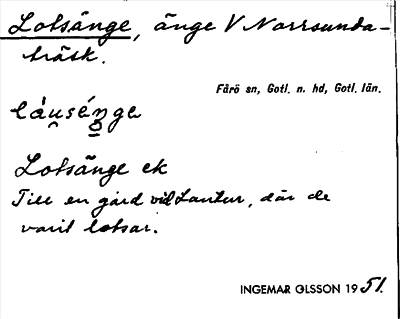 Lotsänge, änge V Norrsunda-
träsk.
Fårö sn, Gotl. n. hd, Gotl. län.
Lotsänge ek
Till en gård vid Lautur, där de
varit lotsar.
INGEMAR OLSSON 1951.